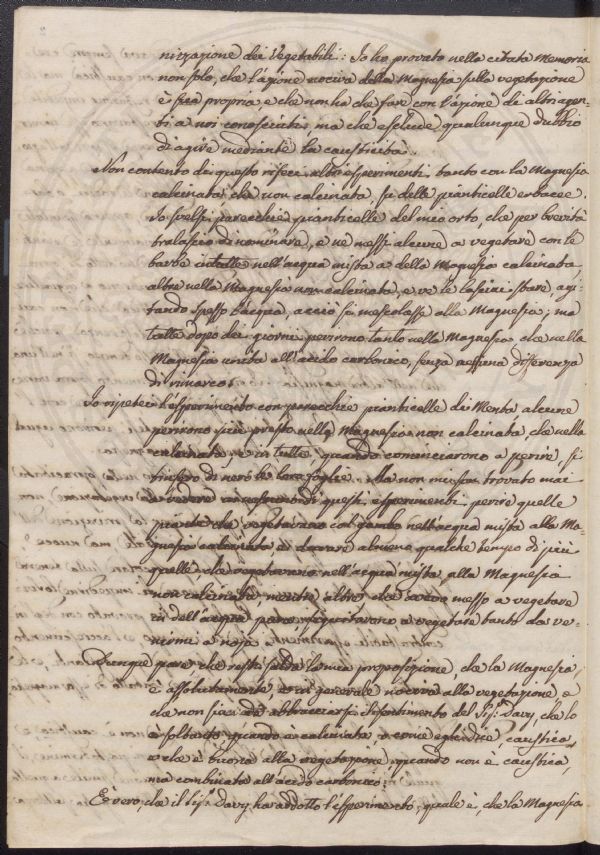 nizzazione dei Vegetabili: Io ho provato nella citata Memoria
non solo, che l'azione nociva della Magnesia sulla vegetazione
è sua propria e che non ha che fare con l'azione di altri agen-
ti a noi conosciuti, ma che esclude qualunque dubbio
di agire mediante la causticità.
Non contento di questo rifeci altri esperimenti tanto con la Magnesia
calcinata, che non calcinata, su delle pianticelle erbacee.
Io svelsi parecchie pianticelle del mio orto, che per brevità
tralascio di nominare, e ne messi alcune a vegetare con le
barbe intatte nell'acqua mista a della Magnesia calcinata,
altre nella Magnesia non calcinata, e ve le lasciai stare, agi-
tando spesso l'acqua, acciò si mescolasse alla Magnesia; ma
tutte dopo dei giorni perirono tanto nella Magnesia, che nella
Magnesia unita all'acido carbonico, senza nessuna differenza
di rimarco.
Io ripetei l'esperimento con parecchie pianticelle di Menta alcune
perirono più presto nella Magnesia non calcinata, che nella
calcinata, e in tutte, quando cominciarono a perire, si
tinsero di nero le loro foglie. Ma non mi son trovato mai
a vedere in nessuno di questi esperimenti perire quelle
piante che vegetavano col gambo nell'acqua mista alla Ma-
gnesia calcinata, e durare almeno qualche tempo di più
quelle che vegetavano nell'acqua mista alla Magnesia
non calcinata, mentre altre che avevo messo a vegetare
in dell'acqua pura, seguitavano a vegetare tanto da ve-
nirmi a noja.
Dunque pare che resti salda la mia proposizione, che la Magnesia,
è assolutamente e in generale nociva alla vegetazione e
che non sia da abbracciarsi il sentimento del Sig.r Davy, che lo
è soltanto quando è calcinata, o come egli dice caustica,
e che è buona alla vegetazione, quando non è caustica,
ma combinata all'acido carbonico.
È vero, che il Sig.r Davy, ha addotto l'esperimento, quale è, che la Magnesia